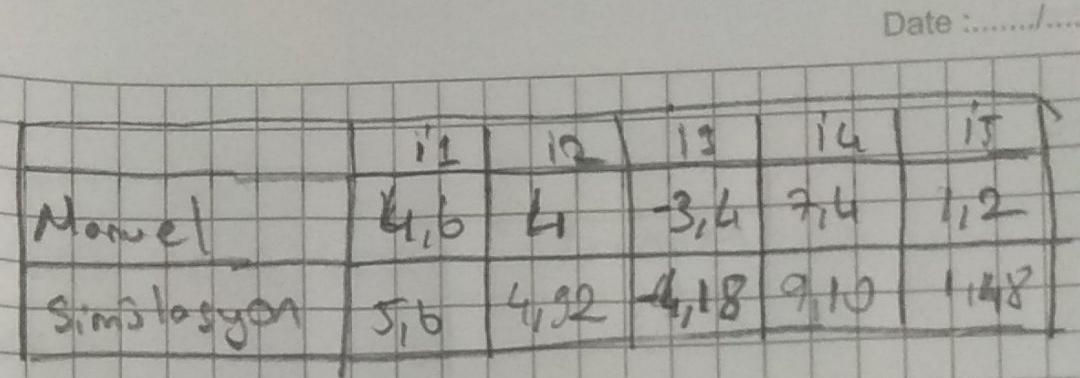 Date :......./....
i1 i2 i3 i4 i5
Manuel 4,6 4 -3,4 7,4 1,2
Simülasyon 5,6 4,92 -4,18 9,10 1,48